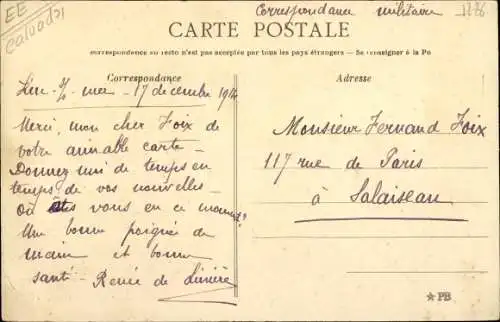 EE
Calvados
Correspondance militaire
CARTE POSTALE
correspondance au recto n'est pas acceptée par tous les pays étrangers — Se renseigner à la Po
Correspondance
Adresse
Lion s/ mer - 17 decembre 1914
Merci, mon cher Foix de
votre aimable carte -
Donnez moi de temps en
temps de vos nouvelles -
Où êtes vous en ce moment?
Une bonne poignée de
main et bonne
santé - Renée de
Monsieur Fernand Foix
117 rue de Paris
à Palaiseau
PB